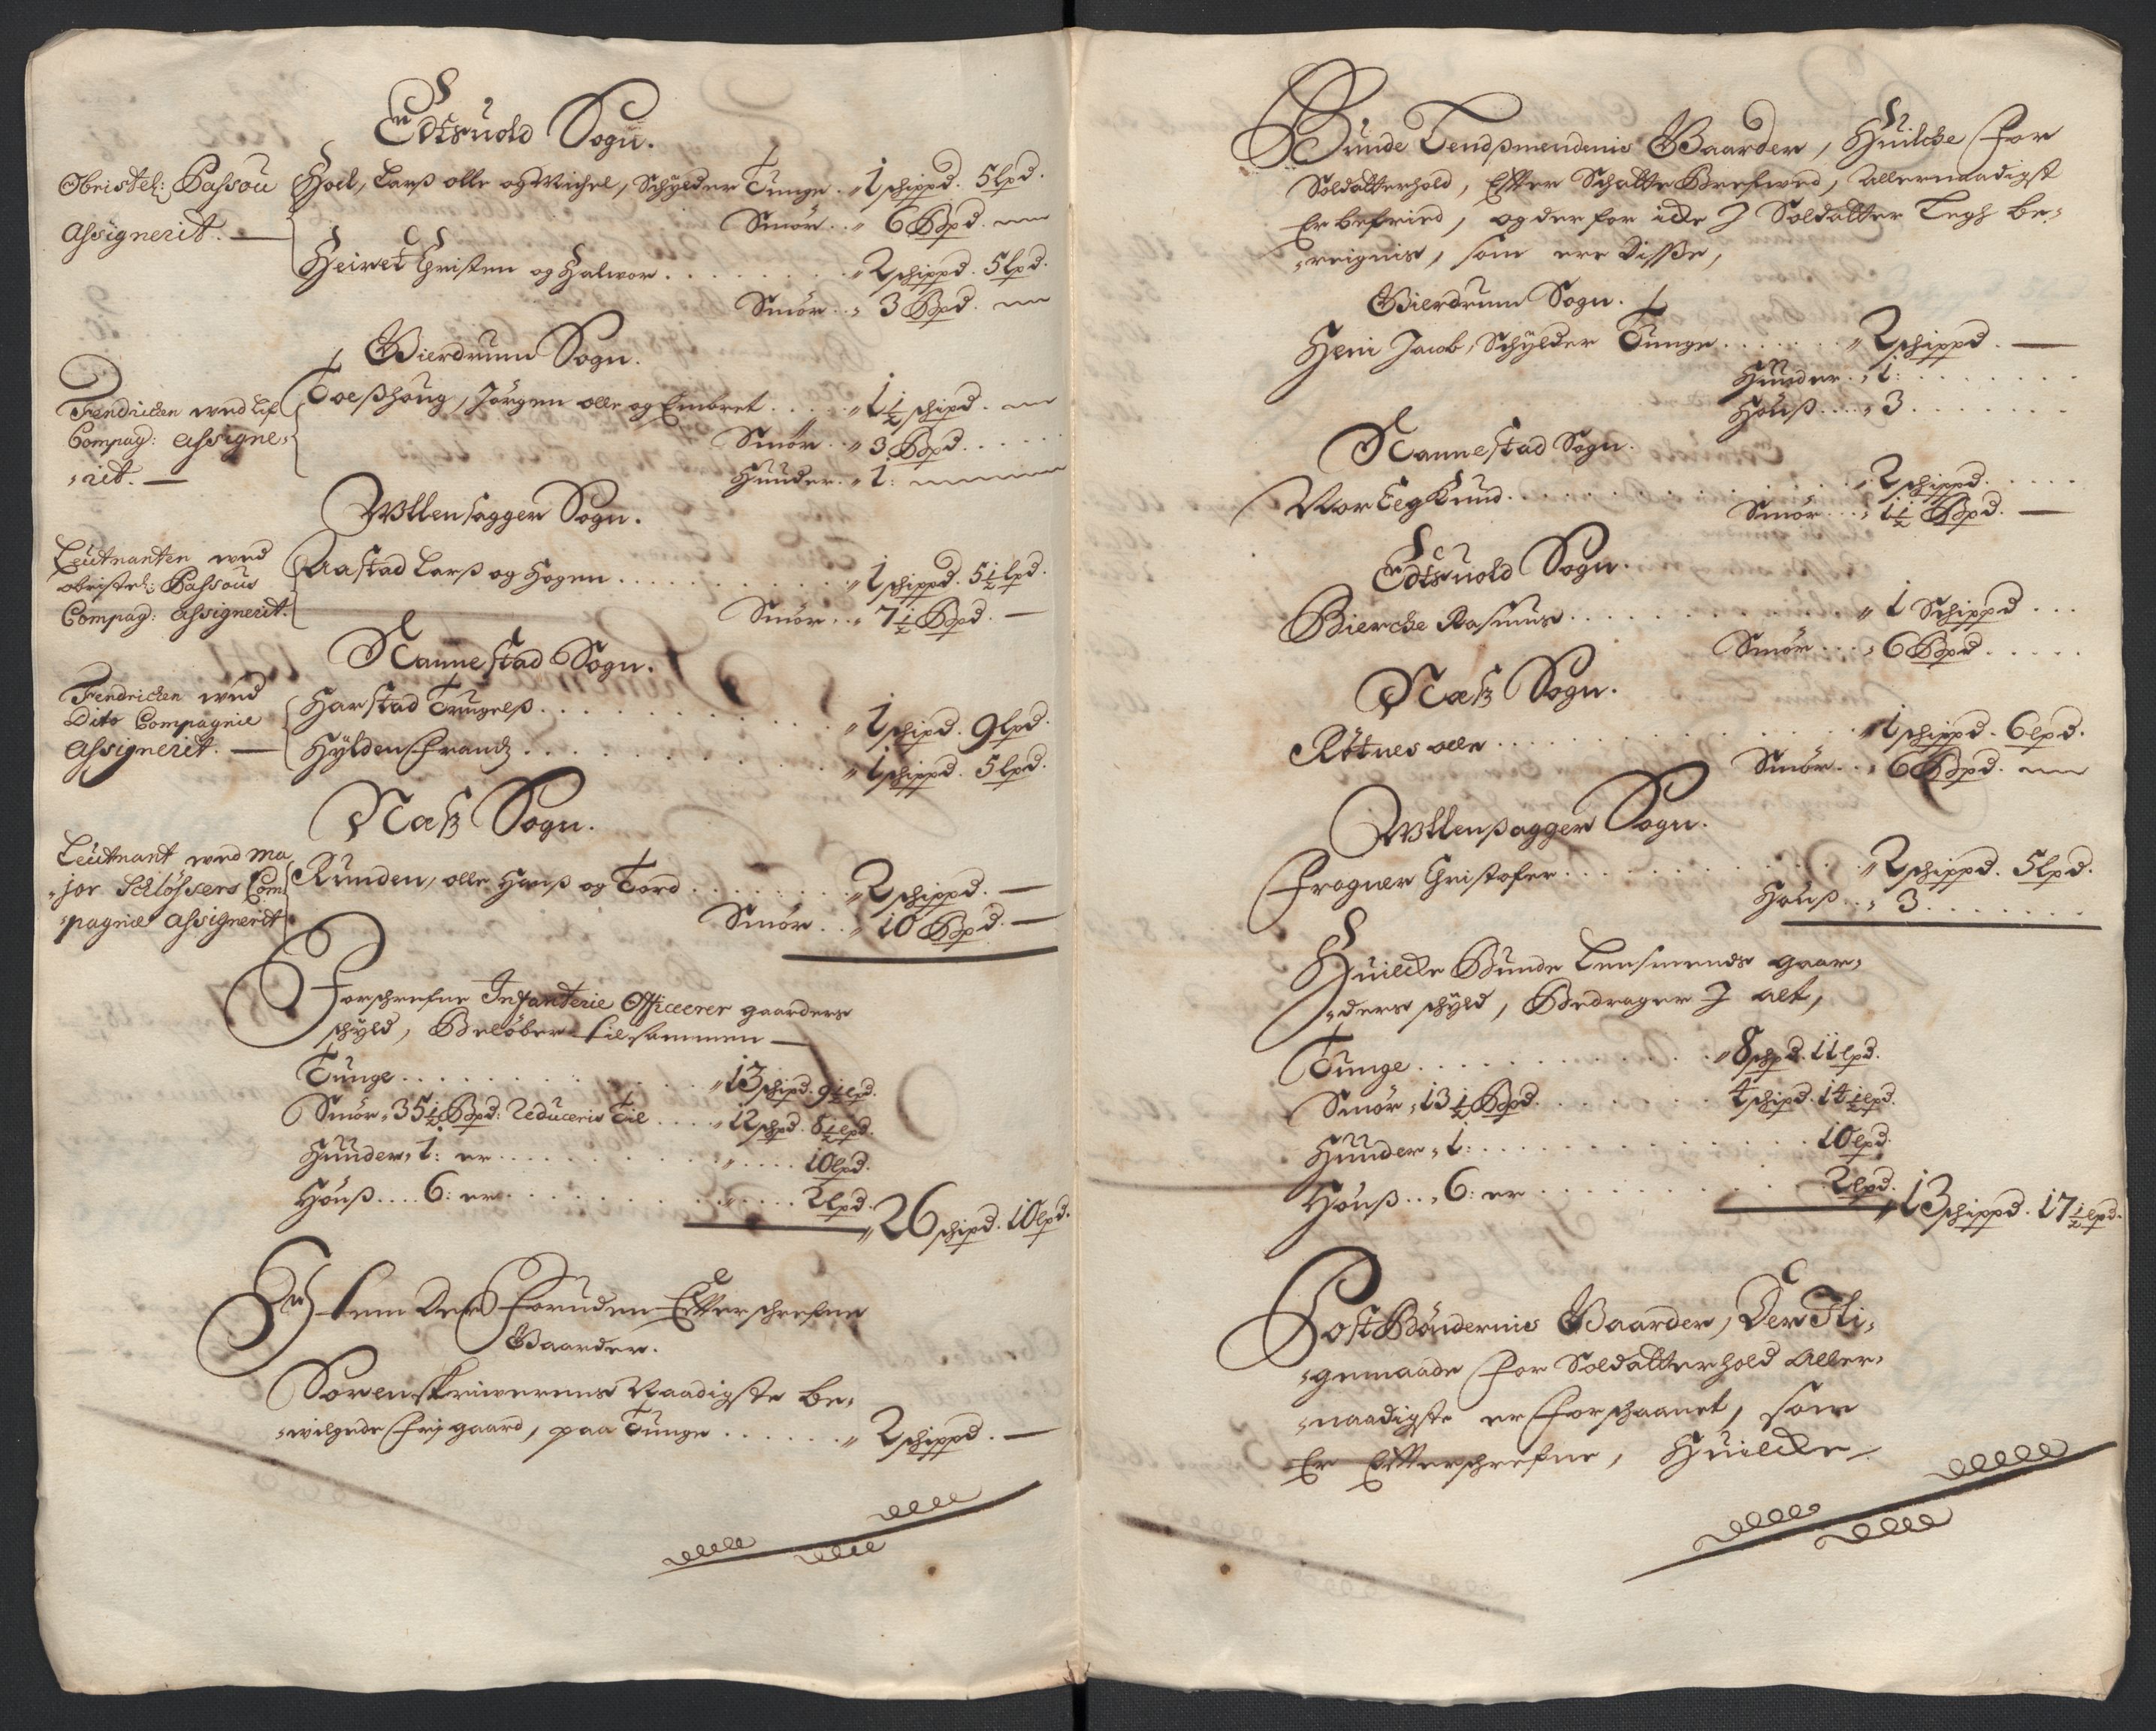 Edtsuold Sogn.
Obristel: Passou
Assignerit.
Hoel, Larss olle og Michel, Schylder Tunge. 1 schippd. 5 lpd.
Smör.. 6 Bpd.
Heiret Christen og Halvor. 2 schippd. 5 lpd.
Smör.. 3 Bpd.
Gierdrum Sogn.
Fendrichen wed Lif
Compag: Assigne-
-rit.
Toesshoug, Jörgen olle og Embret. 1½ schipd.
Smör.. 3 Bpd.
Huuder. 1:
Wllensagger Sogn.
Leutnanten wed
obristel: Passous
Compag: Assignerit.
Aastad Larss og Hogen. 1 schippd. 5½ lpd.
Smör.. 7½ Bpd.
Nannestad Sogn.
Fendrichen wed
Dito Compagnie
Assignerit.
Harstad Trugelss. 1 schipd. 9 lpd.
Hylden Frandz. 1 schippd. 5 lpd.
Næss Sogn.
Leutnant wed Ma
-jor Schlössers Com
-pagnie Assignerit
Runden, olle Hanss og Tord. 2 schippd.
Smör.. 10 Bpd.
Forschrefne Infanterie Officerer gaarders
schyld, Belöber tilsammen
Tunge. 13 schipd. 9½ lpd.
Smör, 35½ Bpd: Reduceris til. 12 schpd. 8½ lpd.
Huuder, 1: er. 10 lpd.
Houss.... 6: er. 2 lpd.
26 schipd. 10 lpd.
Er foruden Efterschrefne
Gaarder.
Sorenskriwerens Naadigste be-
-wilgede frj gaard, paa Tunge. 2 schippd.
Bunde Lendsmendenis Gaarder, Huilche for
Soldatterhold, Efter Schatte Brefwed, Allernaadigst
Er befried, og der for icke J Soldatter Legh be-
-reignis, som ere Disse,
Gierdrum Sogn.
Heni Jacob, Schylder Tunge. 2 schippd.
Huuder. 1:
Houss... 3
Nannestad Sogn.
Nor Eeg Knud. 2 schippd.
Smör... 1½ Bpd.
Edtsuold Sogn.
Biercke Rasmus. 1 Schippd
Smör... 6 Bpd
Næss Sogn.
Rötnes olle. 1 schippd. 6 lpd.
Smör.. 6 Bpd.
Wllenssagger Sogn.
Frogner Christofer. 2 schippd. 5 lpd.
Houss.. 3
Huilcke Bunde Lensmends gaar-
-ders schyld, Bedrager J alt,
Tunge. 8 schpd. 11 lpd.
Smör, 13½ Bpd. 4 schipd. 14½ lpd.
Huuder, 1: 10 lpd.
Houss... 6: er 2 lpd.
13 schippd. 17½ lpd.
Post Böndernis Gaarder, Der Ili-
-gemaade for Soldatterhold Aller-
-naadigste er forschaanet, som
Er Efterschrefne, Huilcke